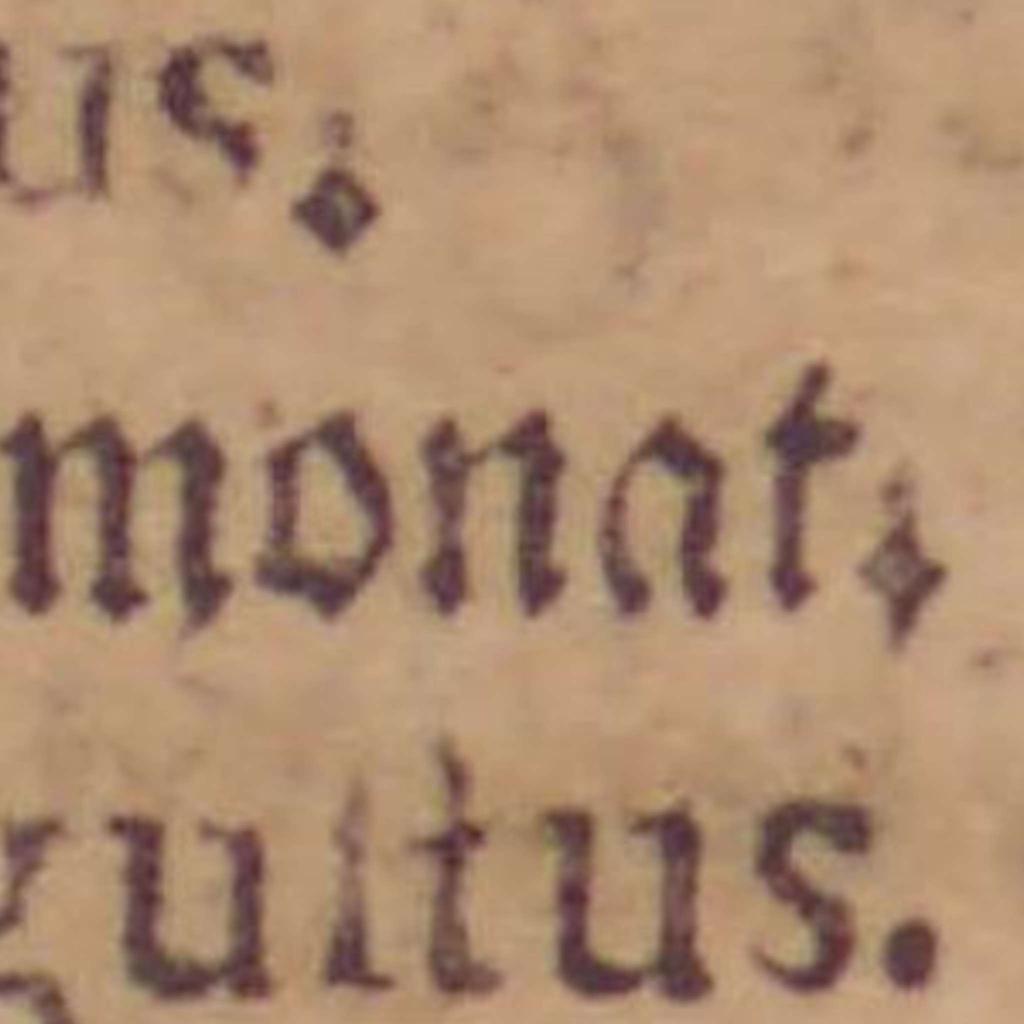 us.
monat.
ultus.